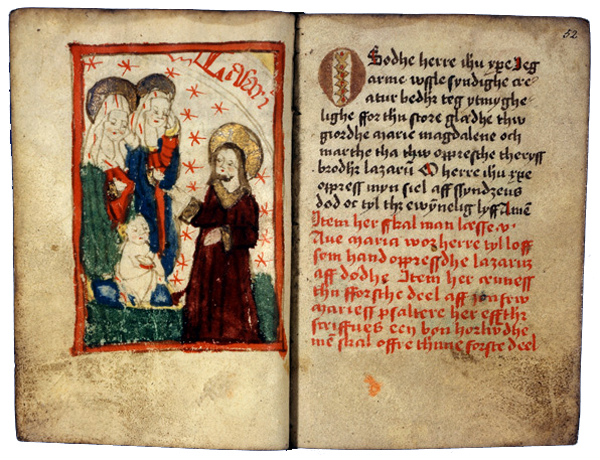 52
O Sodhe herre ihu xpe Jeg
arme wssle syndighe cre
atur bedhr teg ytmyghe
lighe ffor thn store glædhe thw
giordhe marie magdalene och
marthe tha thw oppresthe therss
brodhr lazarū O herre ihu xpe
oppress myn siel aff syndzens
dod oc tyl thz ewynelig lyff Amē
Item her skal man læsse v
Aue maria wor herre tyl loff
som hand oppressdhe lazarum
aff dodhe Item her
thn fforsthe deel aff
mariess psaltere her effthr
scriffues een bon
mē skal offre thnne forste deel